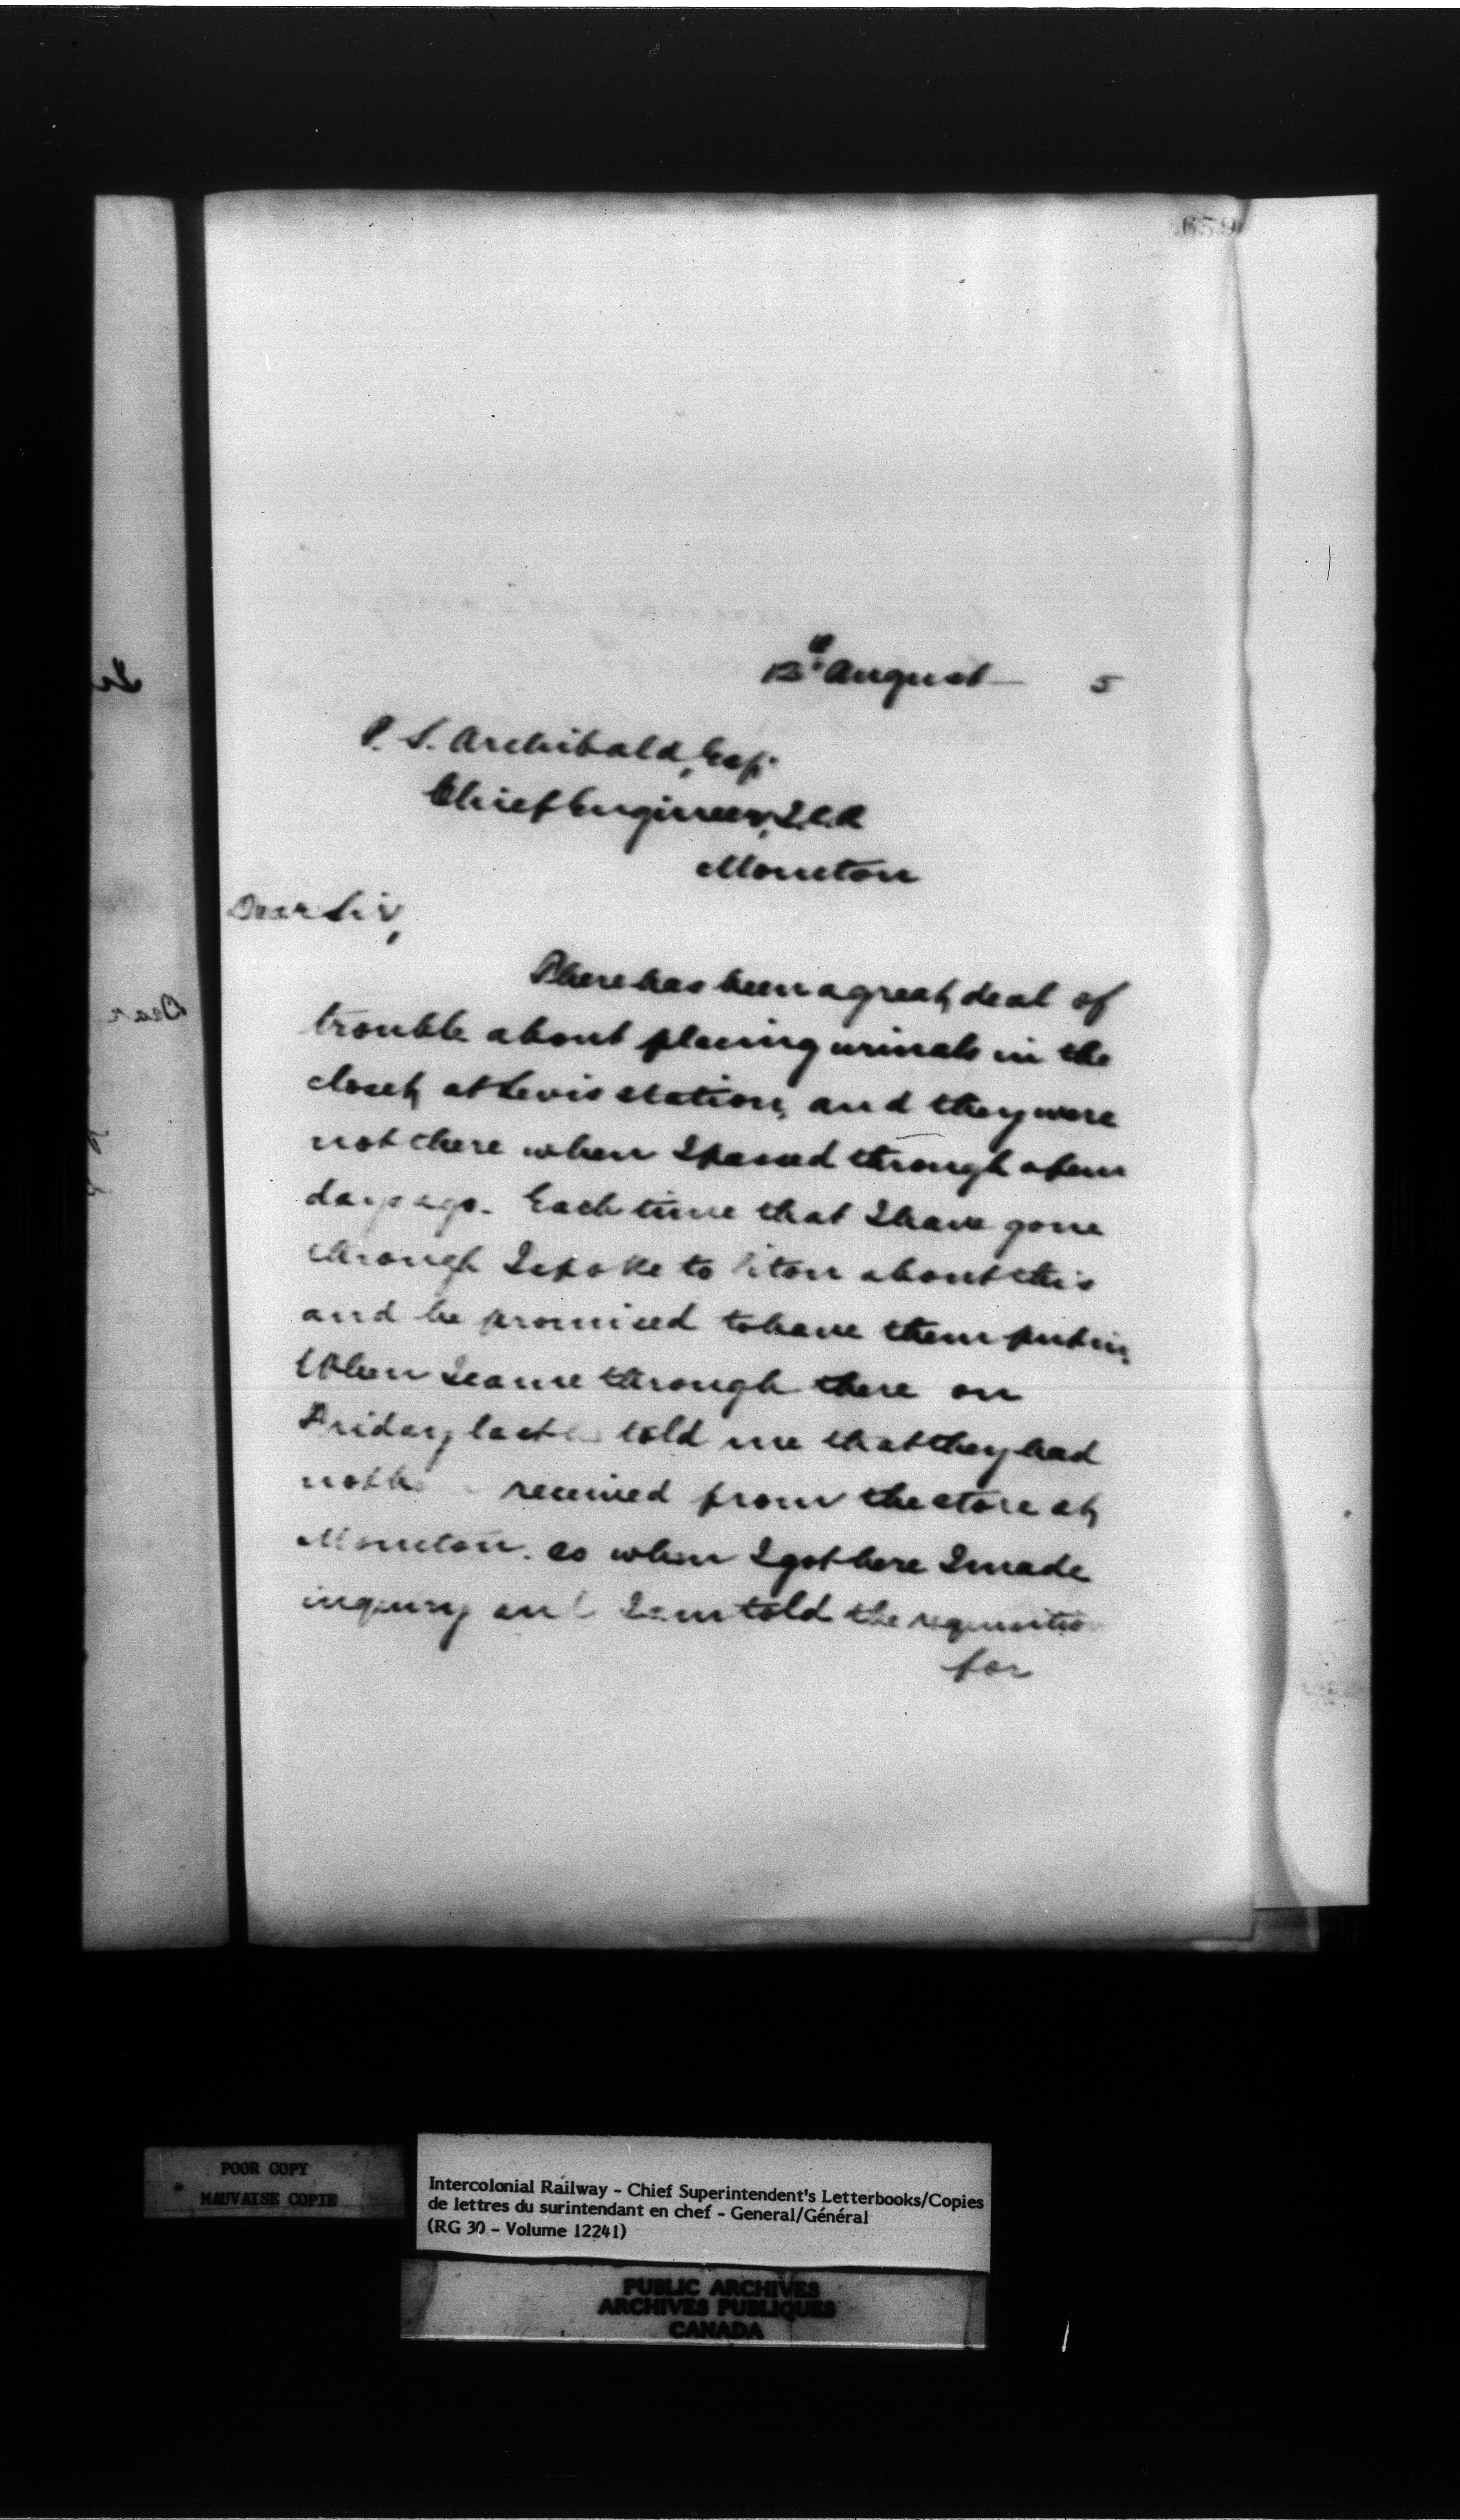 659
13th August 5
P. S. Archibald, Esq.
Chief Engineer, I.C.R
Moncton
Dear Sir,
There has been a great deal of
trouble about placing urinals in the
closet at Levis station, and they were
not there when I passed through a few
days ago. Each time that I have gone
through I spoke to about this
and he promised to have them put in,
When I came through there on
Friday last he told me that they had
not received from the store at
Moncton. so when I got here I made
inquiry and I am told the requisition
for
Dear
POOR COPY
MAUVAISE COPIE
Intercolonial Railway - Chief Superintendent's Letterbooks/Copies
de lettres du surintendant en chef - General/Général
(RG 30 - Volume 12241)
PUBLIC ARCHIVES
ARCHIVES PUBLIQUES
CANADA